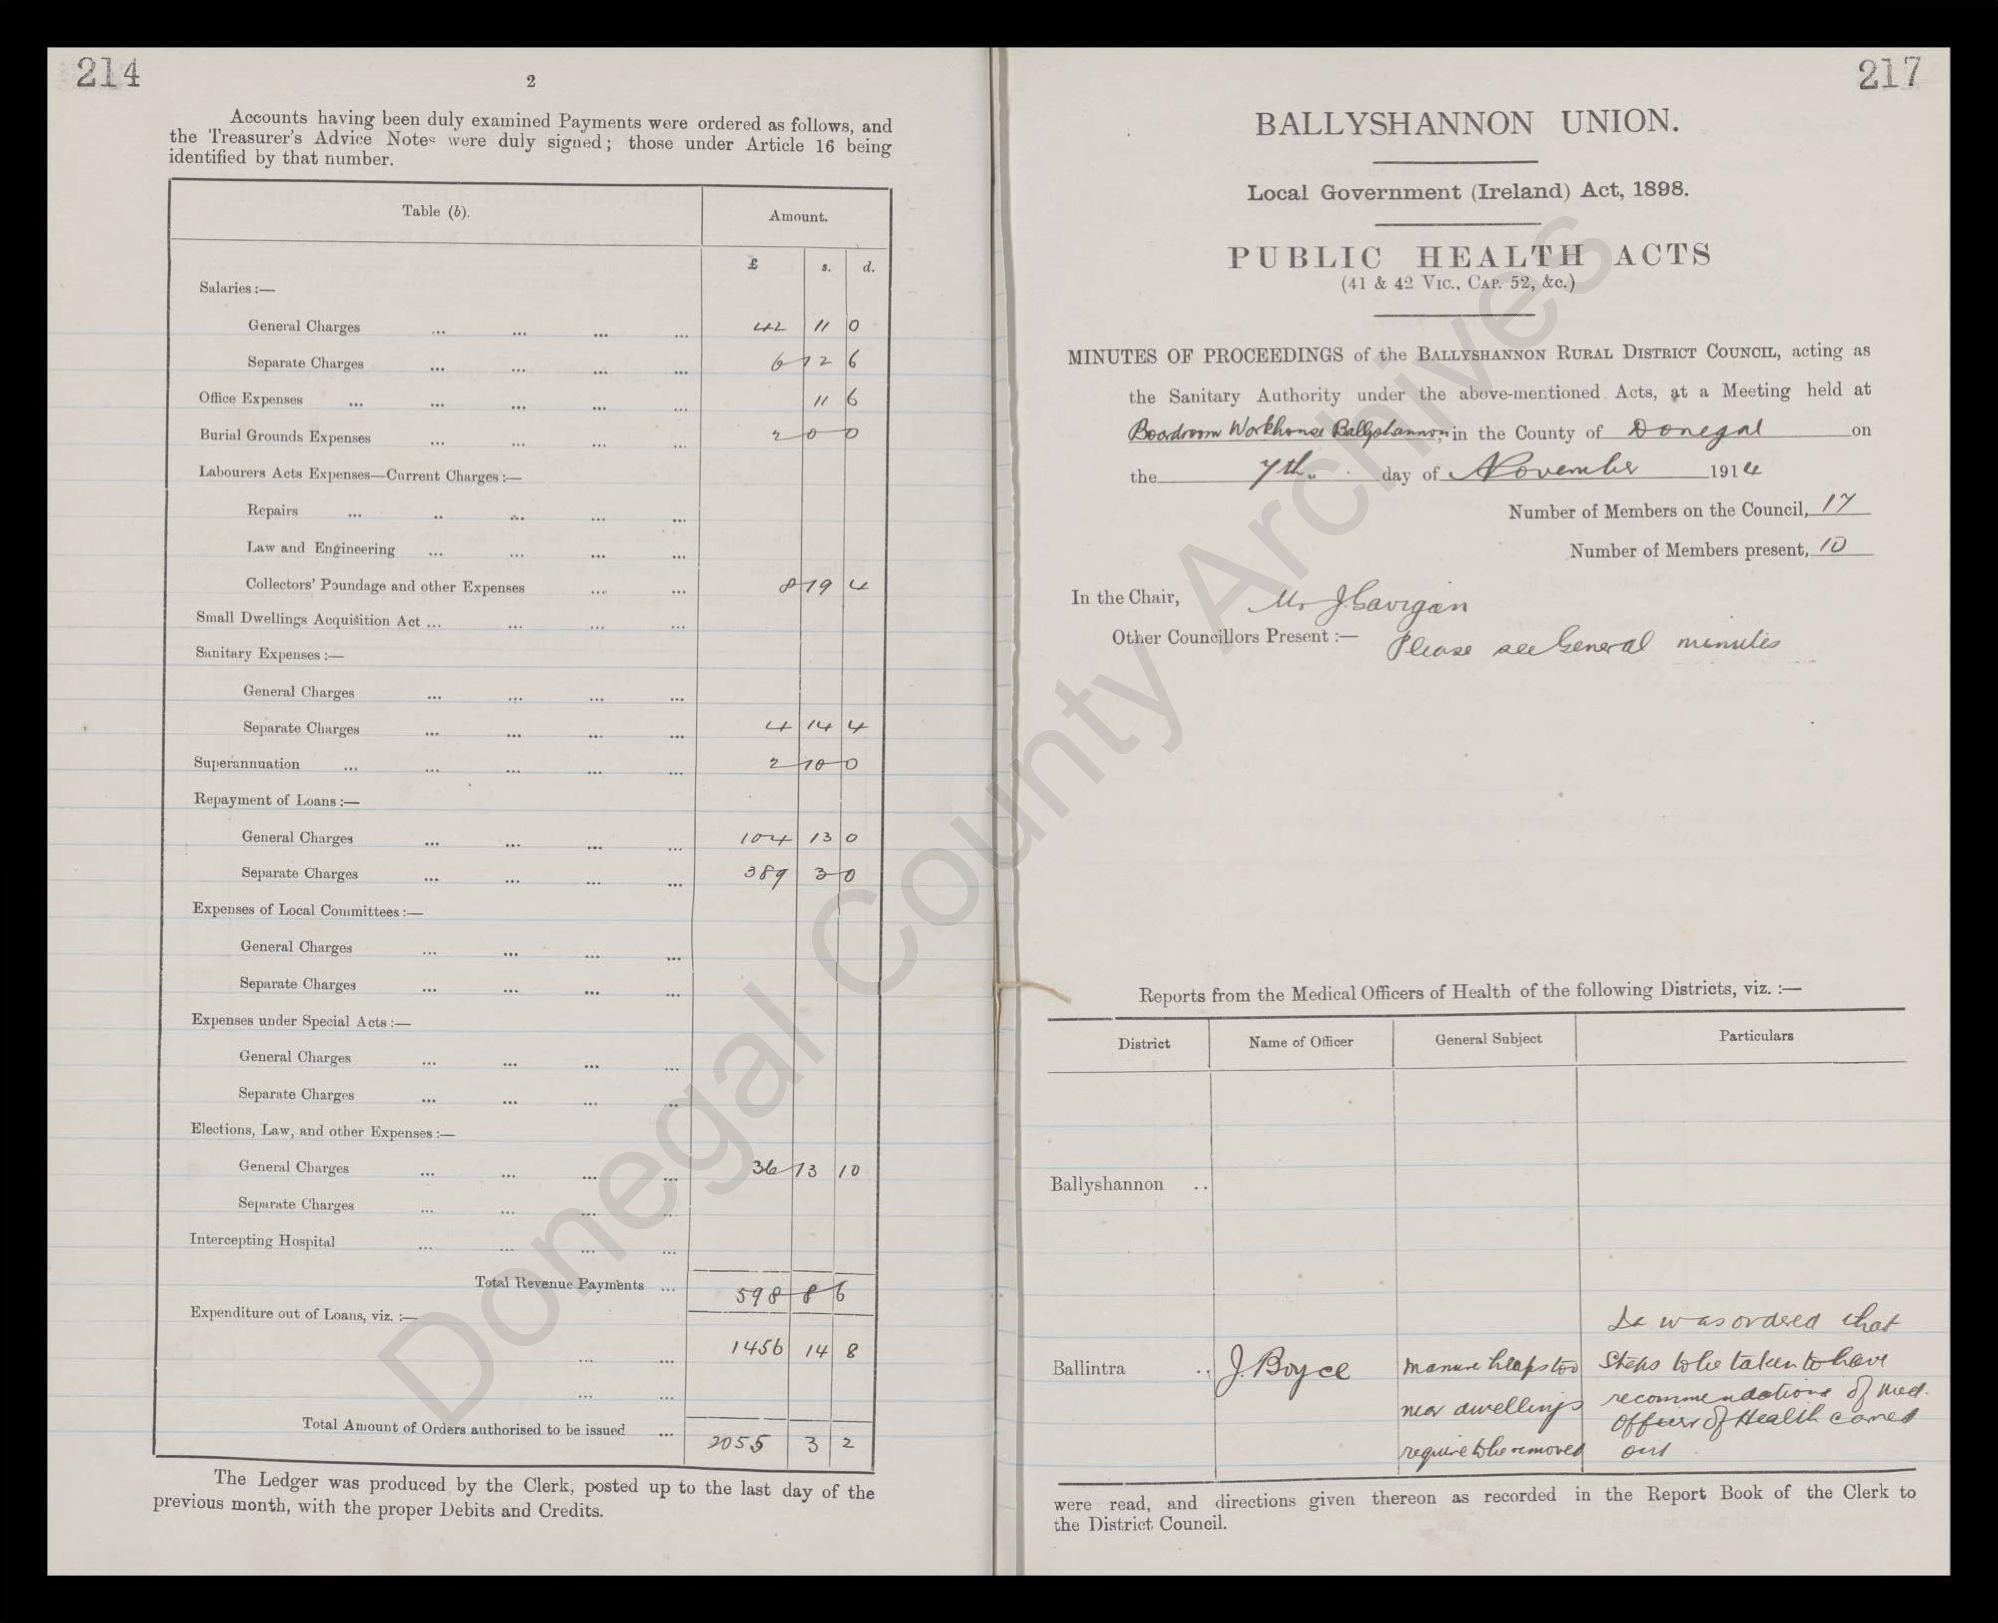 214
2
Accounts having been duly examined Payments were ordered as follows, and
the Treasurer's Advice Notes were duly signed; those under Article 16 being
identified by that number.
Table (b). Amount.
£ s. d.
Salaries :—
General Charges ... ... ... ... 42 11 0
Separate Charges ... ... ... ... 6 12 6
Office Expenses ... ... ... ... ... 11 6
Burial Grounds Expenses ... ... ... ... 2 0 0
Labourers Acts Expenses—Current Charges :—
Repairs ... .. ... ... ...
Law and Engineering ... ... ... ...
Collectors' Poundage and other Expenses ... ... 8 19 4
Small Dwellings Acquisition Act ... ... ... ...
Sanitary Expenses :—
General Charges ... ... ... ...
Separate Charges ... ... ... ... 4 14 4
Superannuation ... ... ... ... ... 2 10 0
Repayment of Loans :—
General Charges ... ... ... ... 104 13 0
Separate Charges ... ... ... ... 389 3 0
Expenses of Local Committees :—
General Charges ... ... ... ...
Separate Charges ... ... ... ...
Expenses under Special Acts :—
General Charges ... ... ... ...
Separate Charges ... ... ... ...
Elections, Law, and other Expenses :—
General Charges ... ... ... ... 36 13 10
Separate Charges ... ... ... ...
Intercepting Hospital ... ... ... ...
Total Revenue Payments ... 598 8 6
Expenditure out of Loans, viz. :—
... ... 1456 14 8
... ...
Total Amount of Orders authorised to be issued ... 2055 3 2
The Ledger was produced by the Clerk, posted up to the last day of the
previous month, with the proper Debits and Credits.
217
BALLYSHANNON UNION.
Local Government (Ireland) Act, 1898.
PUBLIC HEALTH ACTS
(41 & 42 Vic., Cap. 52, &c.)
MINUTES OF PROCEEDINGS of the Ballyshannon Rural District Council, acting as
the Sanitary Authority under the above-mentioned Acts, at a Meeting held at
Boardroom Workhouse Ballyshannon, in the County of Donegal on
the 7th. day of November 1914
Number of Members on the Council, 17
Number of Members present, 10
In the Chair, Mr J. Gavigan
Other Councillors Present :— Please see General minutes
Reports from the Medical Officers of Health of the following Districts, viz. :—
District Name of Officer General Subject Particulars
Ballyshannon ..
It was ordered that
Ballintra .. J. Boyce manure heaps too steps to be taken to have
near dwellings recommendations of Med.
Officer of Health carried
require to be removed out
were read, and directions given thereon as recorded in the Report Book of the Clerk to
the District Council.
Donegal County Archives